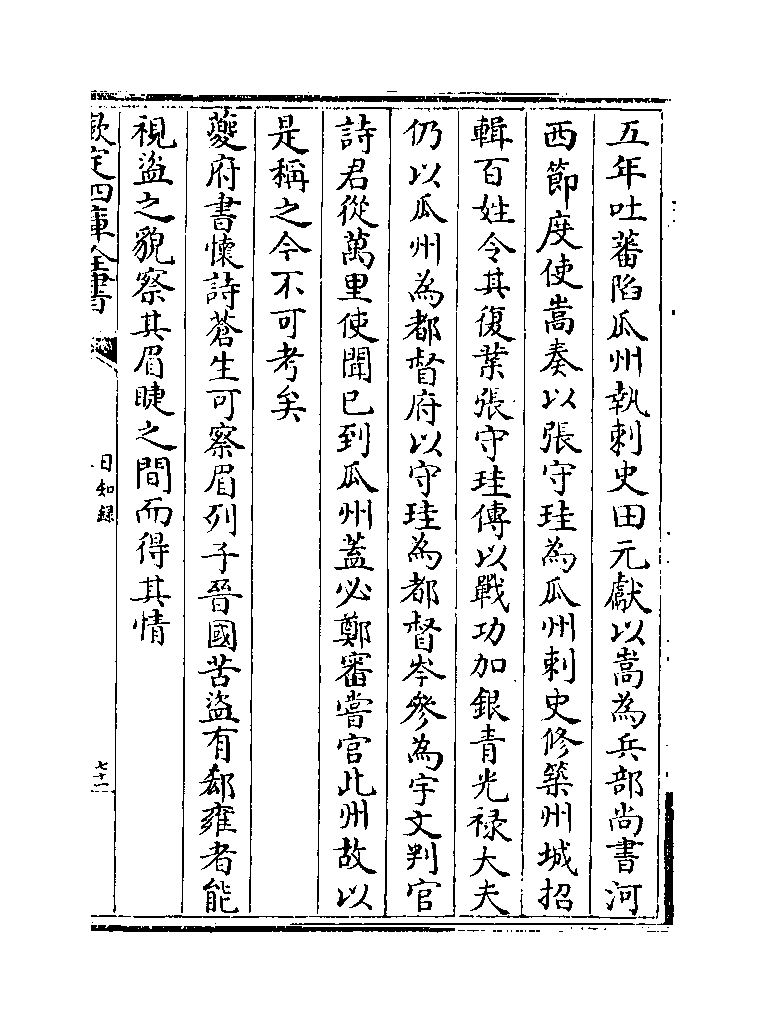 五年吐蕃陷瓜州執刺史田元獻以嵩為兵部尚書河
西節度使嵩奏以張守珪為瓜州刺史修築州城招
輯百姓令其復業張守珪傳以戰功加銀青光祿大夫
仍以瓜州為都督府以守珪為都督岑參為宇文判官
詩君從萬里使聞已到瓜州蓋必鄭審嘗官此州故以
是稱之今不可考矣
夔府書懷詩蒼生可察眉列子晉國苦盜有郄雍者能
視盜之貌察其眉睫之間而得其情
欽定四庫全書
日知錄
七十一